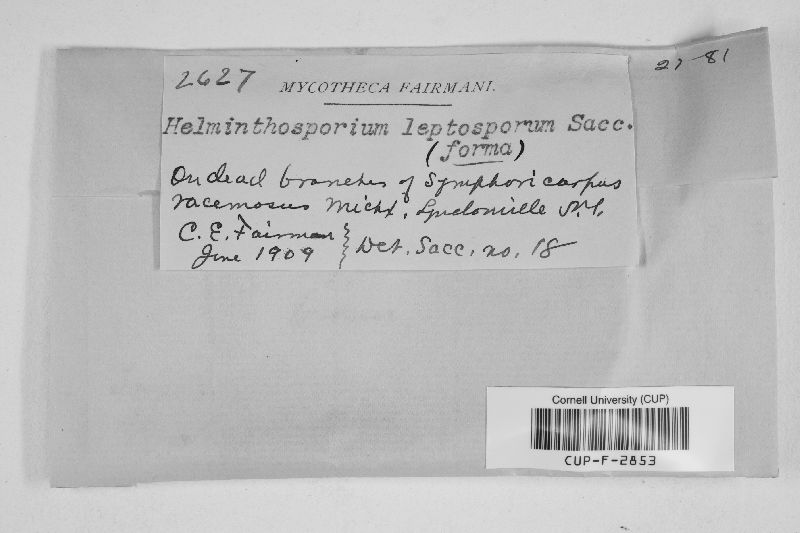 2627
MYCOTHECA FAIRMANI.
27-81
Helminthosporium leptosporum Sacc.
(forma)
On dead branches of Symphoricarpus
racemosus Michx, Lyndonville N.Y.
C. E. Fairman
June 1909
Det. Sacc. no. 18
Cornell University (CUP)
CUP-F-2853